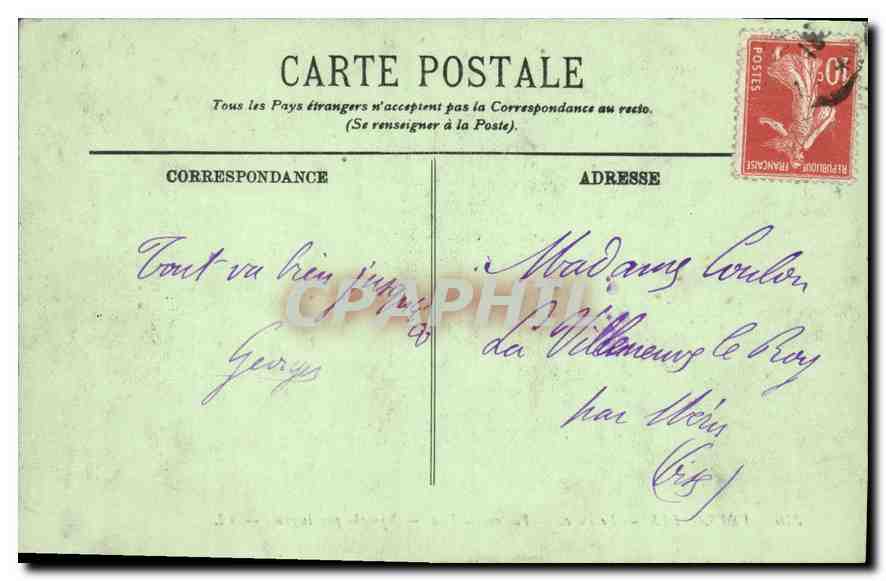 CARTE POSTALE
Tous les Pays étrangers n'acceptent pas la Correspondance au recto.
(Se renseigner à la Poste).
CORRESPONDANCE
ADRESSE
10c
POSTES
REPUBLIQUE FRANÇAISE
Tout va bien jusqu'
Georges
Madame Coulon
La Villeneuve le Roy
par Méru
(Oise)
CPAPHIL